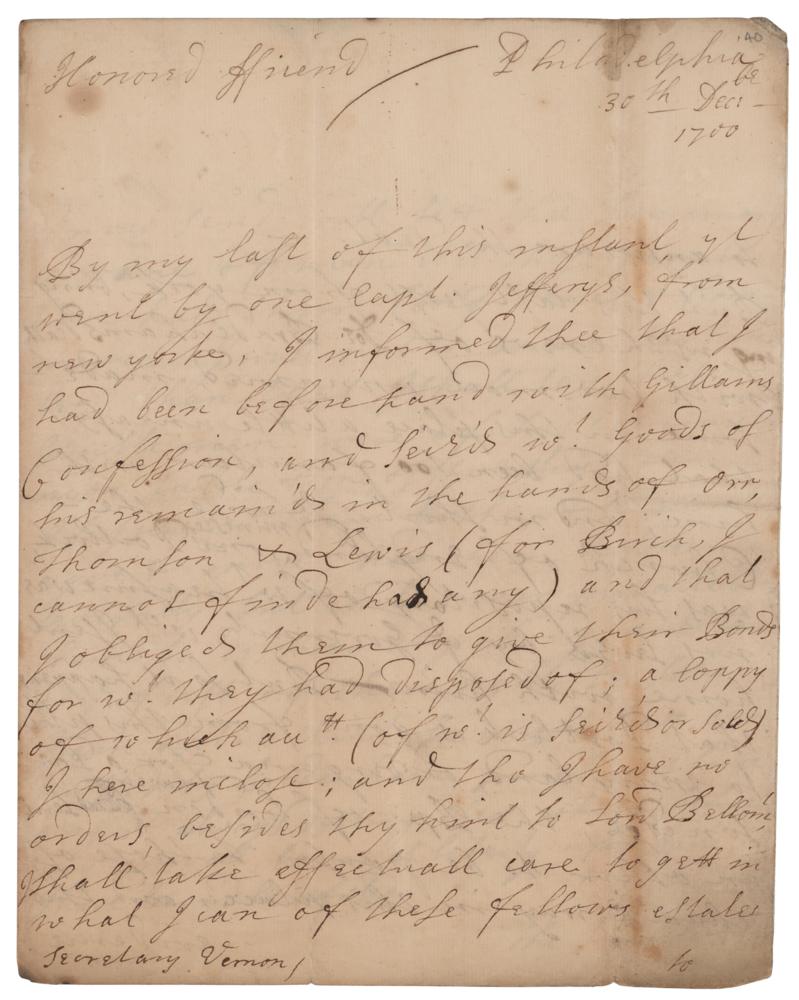 '40
Honored ffriend Philadelphia
30th Decr: be
1700
By my last of this instant yt
went by one Capt. Jefferys, from
new yorke, I informed thee that I
had been beforehand with Gillams
Confession, and seiz'd wt Goods of
his remain'd in the hands of Orr,
Thomson & Lewis (for Birch, I
cannot finde had any) and that
I obliged them to give their Bonds
for wt. they had disposed of; a Coppy
of which acctt. (of wt. is seiz'd or sold)
I here inclose; and tho I have no
orders, besides thy hint to Lord Bellomt,
I shall take effectuall care to gett in
what I can of these fellows estates
Secretary Vernon, to